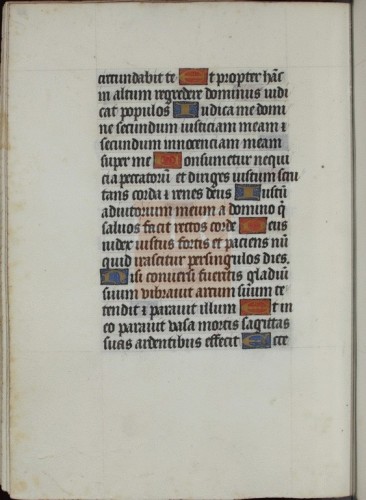 circundabit te Et propter hāc
in altum regredere dominus iudi
cat populos Iudica me domi
ne secundum iusticiam meam ⁊
secundum innocenciam meam
super me Consumetur nequi
cia peccatorū et diriges iustum scru
tans corda ⁊ renes deus Iustū
adiutorium meum a domino q̄
saluos facit rectos corde Deus
iudex iustus fortis et paciens nū
quid irascitur persingulos dies.
Nisi conuersi fueritis gladiū
suum vibrauit arcum suum te
tendit ⁊ parauit illum Et in
eo parauit vasa mortis sagittas
suas ardentibus effecit Ecce